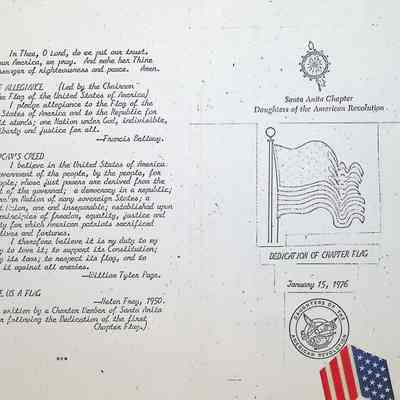 In Thee, O Lord, do we put our trust.
our America, we pray. And make her Thine
messenger of righteousness and peace. Amen.
ALLEGIANCE (Led by the Chairman
the Flag of the United States of America)
I pledge allegiance to the Flag of the
States of America and to the Republic for
it stands; one Nation under God, indivisible,
liberty and justice for all.
--Francis Bellamy.
CREED
I believe in the United States of America
government of the people, by the people, for
people; whose just powers are derived from the
of the governed; a democracy in a republic;
Nation of many sovereign States; a
one and inseparable; established upon
principles of freedom, equality, justice and
ty for which American patriots sacrificed
lives and fortunes.
I therefore believe it is my duty to my
to love it; to support its Constitution;
its laws; to respect its flag, and to
it against all enemies.
--William Tyler Page.
US A FLAG
--Helen Frey, 1950.
written by a Charter Member of Santa Anita
following the Dedication of the first
Chapter Flag.)
***
Santa Anita Chapter
Daughters of the American Revolution
DEDICATION OF CHAPTER FLAG
January 15, 1976
DAUGHTERS OF THE
AMERICAN REVOLUTION